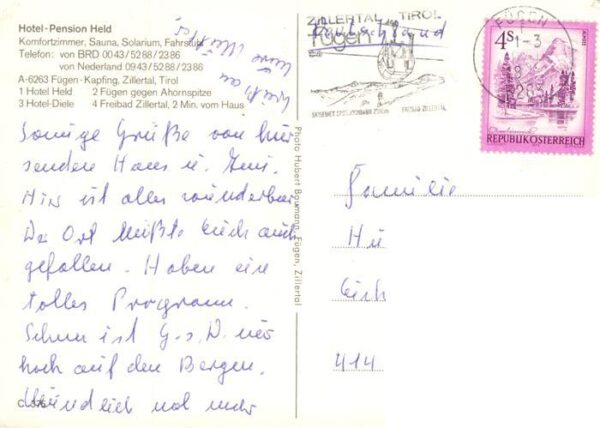 Hotel-Pension Held
Komfortzimmer, Sauna, Solarium, Fahrstuhl
Telefon: von BRD 0043/5288/2386
von Nederland 0943/5288/2386
A-6263 Fügen-Kapfing, Zillertal, Tirol
1 Hotel Held 2 Fügen gegen Ahornspitze
3 Hotel-Diele 4 Freibad Zillertal, 2 Min. vom Haus
Sonnige Grüße von hier
senden Hans u.
Hier ist alles wunderbar
Der Ort müßte Euch auch
gefallen. Haben ein
tolles Programm.
Schnee ist G.s.D. nur
hoch auf den Bergen.
Mündlich mal mehr
Photo Hubert Baumann, Fügen, Zillertal
ZILLERTAL TIROL
Fügen
FREIBAD ZILLERTAL
Deutschland
FÜGEN
4S
REPUBLIK ÖSTERREICH
Familie
414